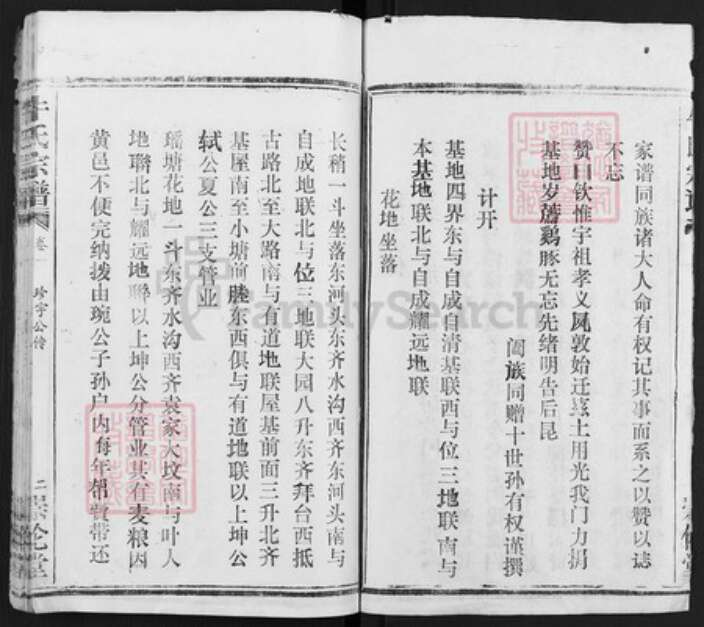 家谱同族诸大人命有权记其事而系之以赞以誌
不忘
赞曰钦惟宇祖孝义夙敦始迁兹土用光我门力捐
基地岁荐鸡豚无忘先绪明告后昆
阖族同赠十世孙有权谨撰
计开
基地四界东与自成自清基联西与位三地联南与
本基地联北与自成耀远地联
花地坐落
长稍一斗坐落东河头东齐水沟西齐东河头南与
自成地联北与位三地联大园八升东齐拜台西抵
古路北至大路南与有道地联屋基前面三升北齐
基屋南至小塘前塍东西俱与有道地联以上坤公
轼公夏公三支管业
瑶塘花地一斗东齐水沟西齐袁家大坟南与叶人
地联北与耀远地联以上坤公分管业其有麦粮因
黄邑不便完纳拨由琬公子孙户内每年帮费带还
氏宗谱
卷一
公传
二
FamilySearch